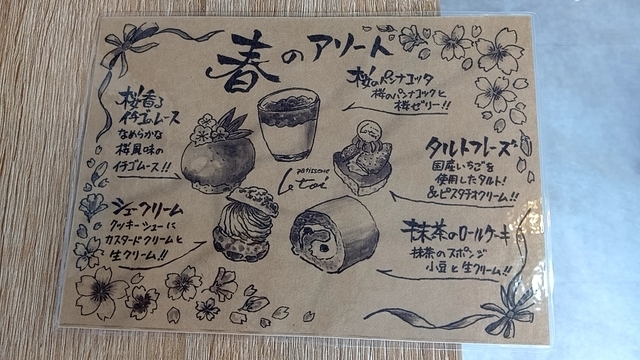 春のアソート
桜のパンナコッタ
桜のパンナコッタと
桜ゼリー!!
桜香る
イチゴムース
なめらかな
桜風味の
イチゴムース!!
patisserie
タルトフレーズ
国産いちごを
使用したタルト!
&ピスタチオクリーム!!
シュークリーム
クッキーシューに
カスタードクリームと
生クリーム!!
抹茶のロールケーキ
抹茶のスポンジ
小豆と生クリーム!!